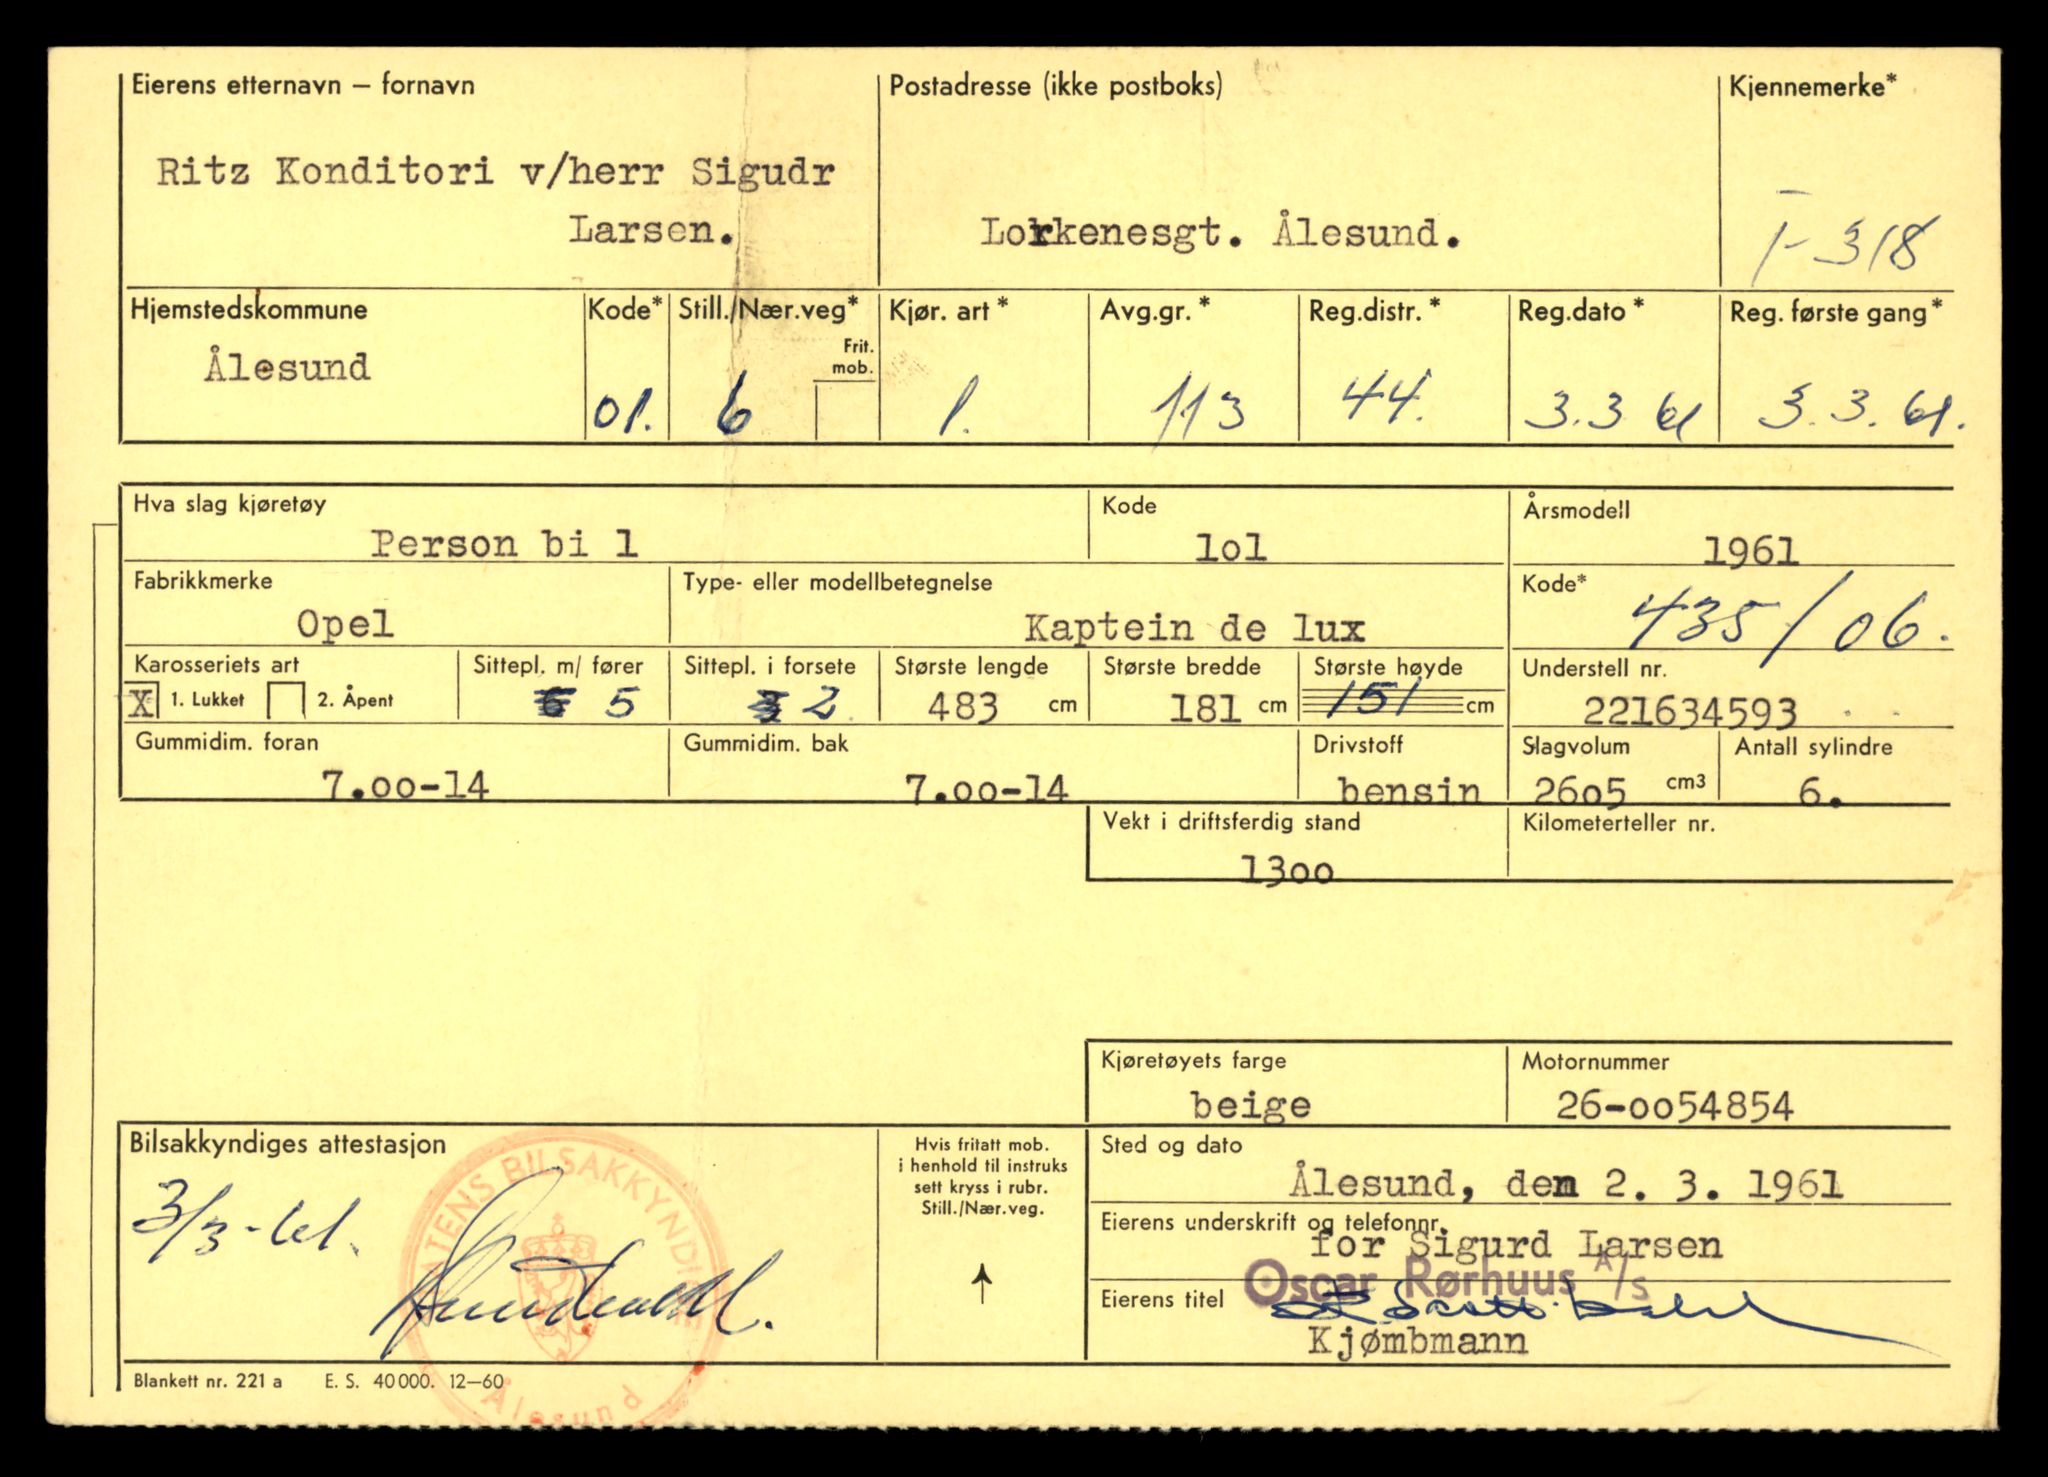 Eierens etternavn – fornavn
Ritz Konditori v/herr Sigudr
Larsen.
Postadresse (ikke postboks)
Lorkenesgt. Ålesund.
Kjennemerke*
T-318
Hjemstedskommune
Ålesund
Kode*
01.
Still./Nær.veg*
6
Frit.
mob.
Kjør. art*
1.
Avg.gr.*
113
Reg.distr.*
44.
Reg.dato*
3.3 61
Reg. første gang*
3.3.61.
Hva slag kjøretøy
Person bi l
Kode
lol
Årsmodell
1961
Fabrikkmerke
Opel
Type- eller modellbetegnelse
Kaptein de lux
Kode*
435/06.
Karosseriets art
X 1. Lukket 2. Åpent
Sittepl. m/ fører
6 5
Sittepl. i forsete
3 2
Største lengde
483 cm
Største bredde
181 cm
Største høyde
151 cm
Understell nr.
221634593
Gummidim. foran
7.oo-14
Gummidim. bak
7.oo-14
Drivstoff
bensin
Slagvolum
26o5 cm3
Antall sylindre
6.
Vekt i driftsferdig stand
13oo
Kilometerteller nr.
Kjøretøyets farge
beige
Motornummer
26-oo54854
Bilsakkyndiges attestasjon
3/3-61.
STATENS BILSAKKYNDIGE
Ålesund
Hvis fritatt mob.
i henhold til instruks
sett kryss i rubr.
Still./Nær.veg.
↑
Sted og dato
Ålesund, den 2. 3. 1961
Eierens underskrift og telefonnr.
for Sigurd Larsen
Oscar Rørhuus A/S
Eierens titel
Kjømbmann
Blankett nr. 221 a E. S. 40 000. 12–60